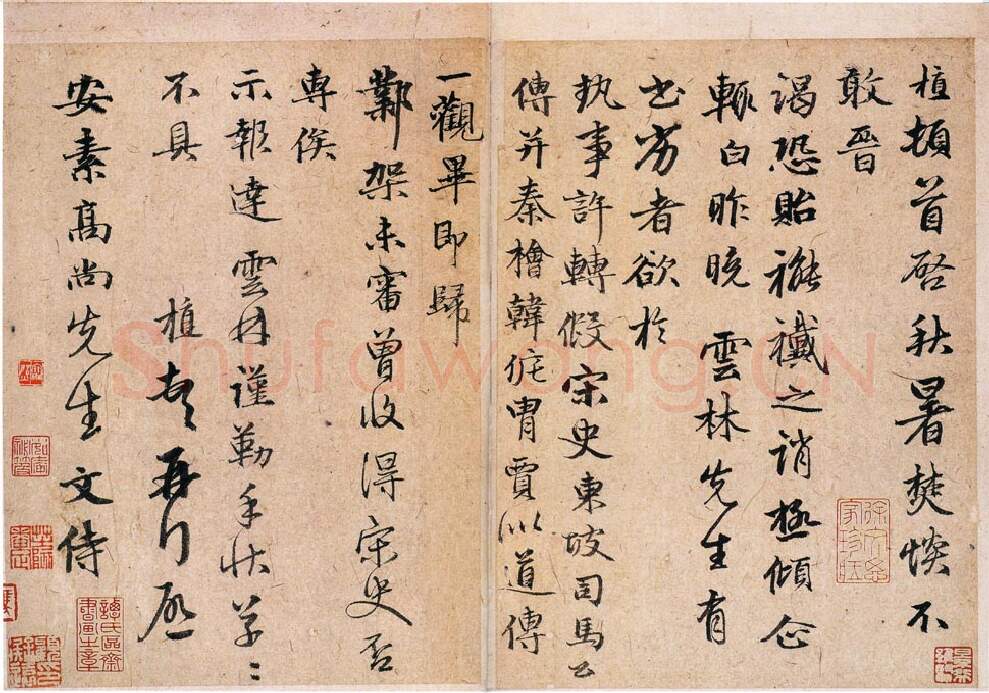 植頓首啓秋暑焚惔不
敢晉
謁恐貽褦襶之誚極傾企
輙白昨晚雲林先生有
書者欲於
執事許轉假宋史東坡司馬公
傳并秦檜韓侂胄賈似道傳
一觀畢即歸
鄴架未審曾收得宋史否
專俟
示報達雲林謹勒手狀草〻
不具 植頓首再拜啓
安素高尚先生文侍
譚氏區齋書畫之章
Shufawang.CN